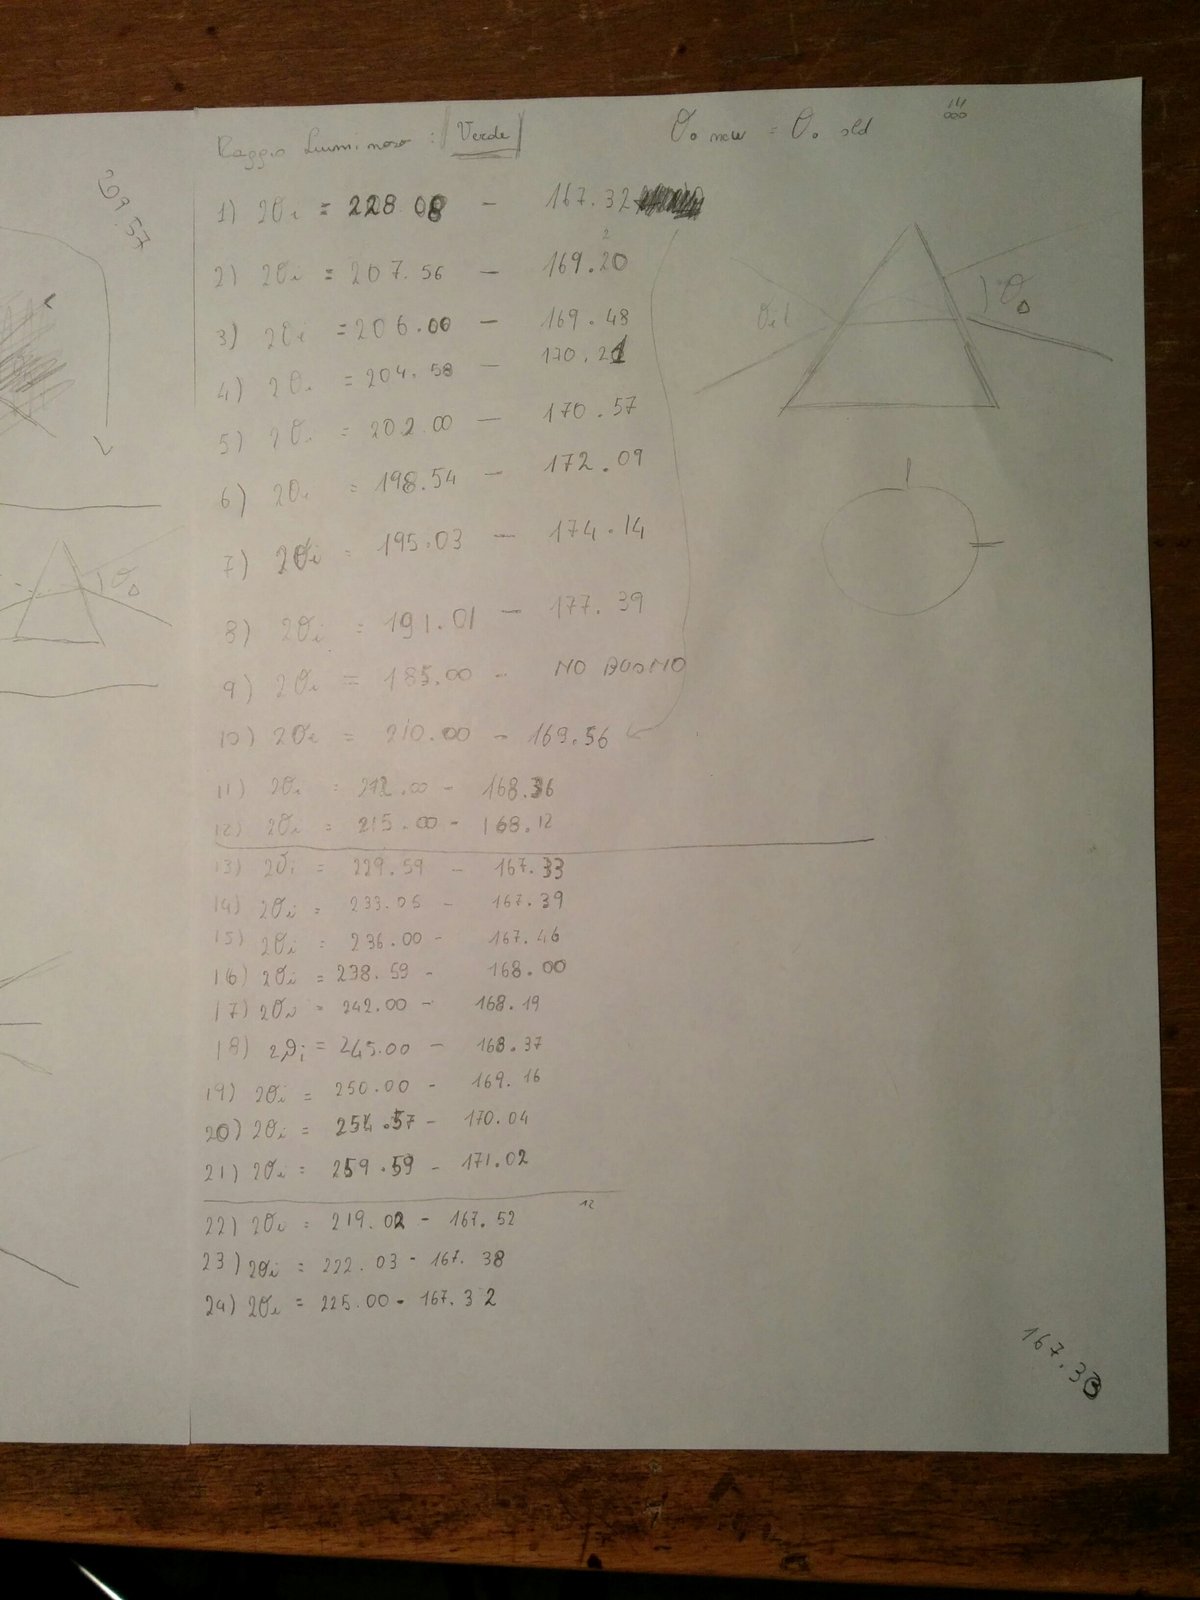 69.57
Raggio Luminoso : Verde
θ₀ new = θ₀ old
1) 2θi = 228 08 - 167.32
2) 2θi = 207.56 - 169.20
3) 2θi = 206.00 - 169.48
4) 2θi = 204.58 - 170.21
5) 2θi = 202.00 - 170.57
6) 2θi = 198.54 - 172.09
7) 2θi = 195.03 - 174.14
8) 2θi = 191.01 - 177.39
9) 2θi = 185.00 - NO BUONO
10) 2θi = 210.00 - 169.56
11) 2θi = 212.00 - 168.36
12) 2θi = 215.00 - 168.12
13) 2θi = 229.59 - 167.33
14) 2θi = 233.05 - 167.39
15) 2θi = 236.00 - 167.46
16) 2θi = 238.59 - 168.00
17) 2θi = 242.00 - 168.19
18) 2θi = 245.00 - 168.37
19) 2θi = 250.00 - 169.16
20) 2θi = 254.57 - 170.04
21) 2θi = 259.59 - 171.02
12
22) 2θi = 219.02 - 167.52
23) 2θi = 222.03 - 167.38
24) 2θi = 225.00 - 167.32
θi
θ₀
θ₀
167.33